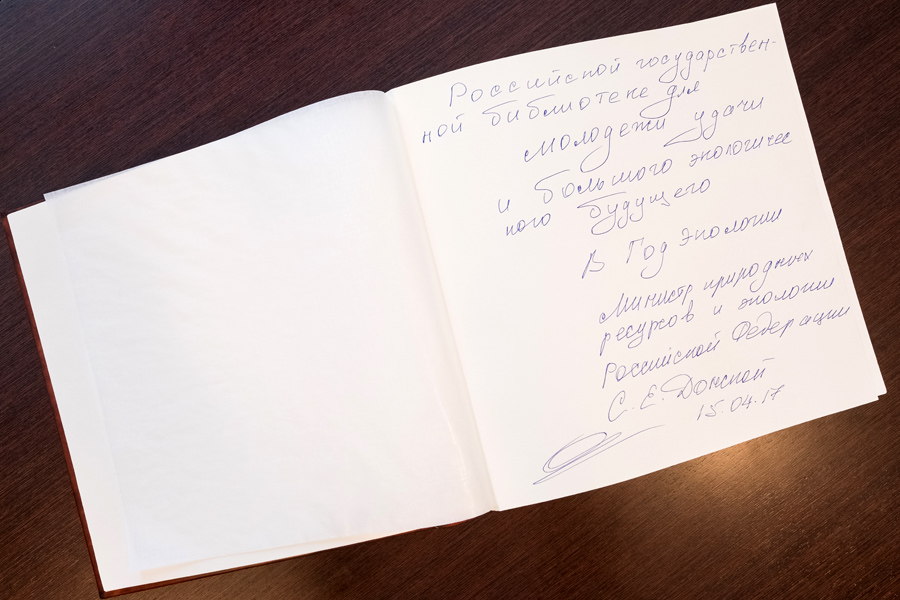 Российской государствен-
ной библиотеке для
молодежи удачи
и большого экологичес
кого будущего
В Год Экологии
Министр природных
ресурсов и экологии
Российской Федерации
С. Е. Донской
15.04.17